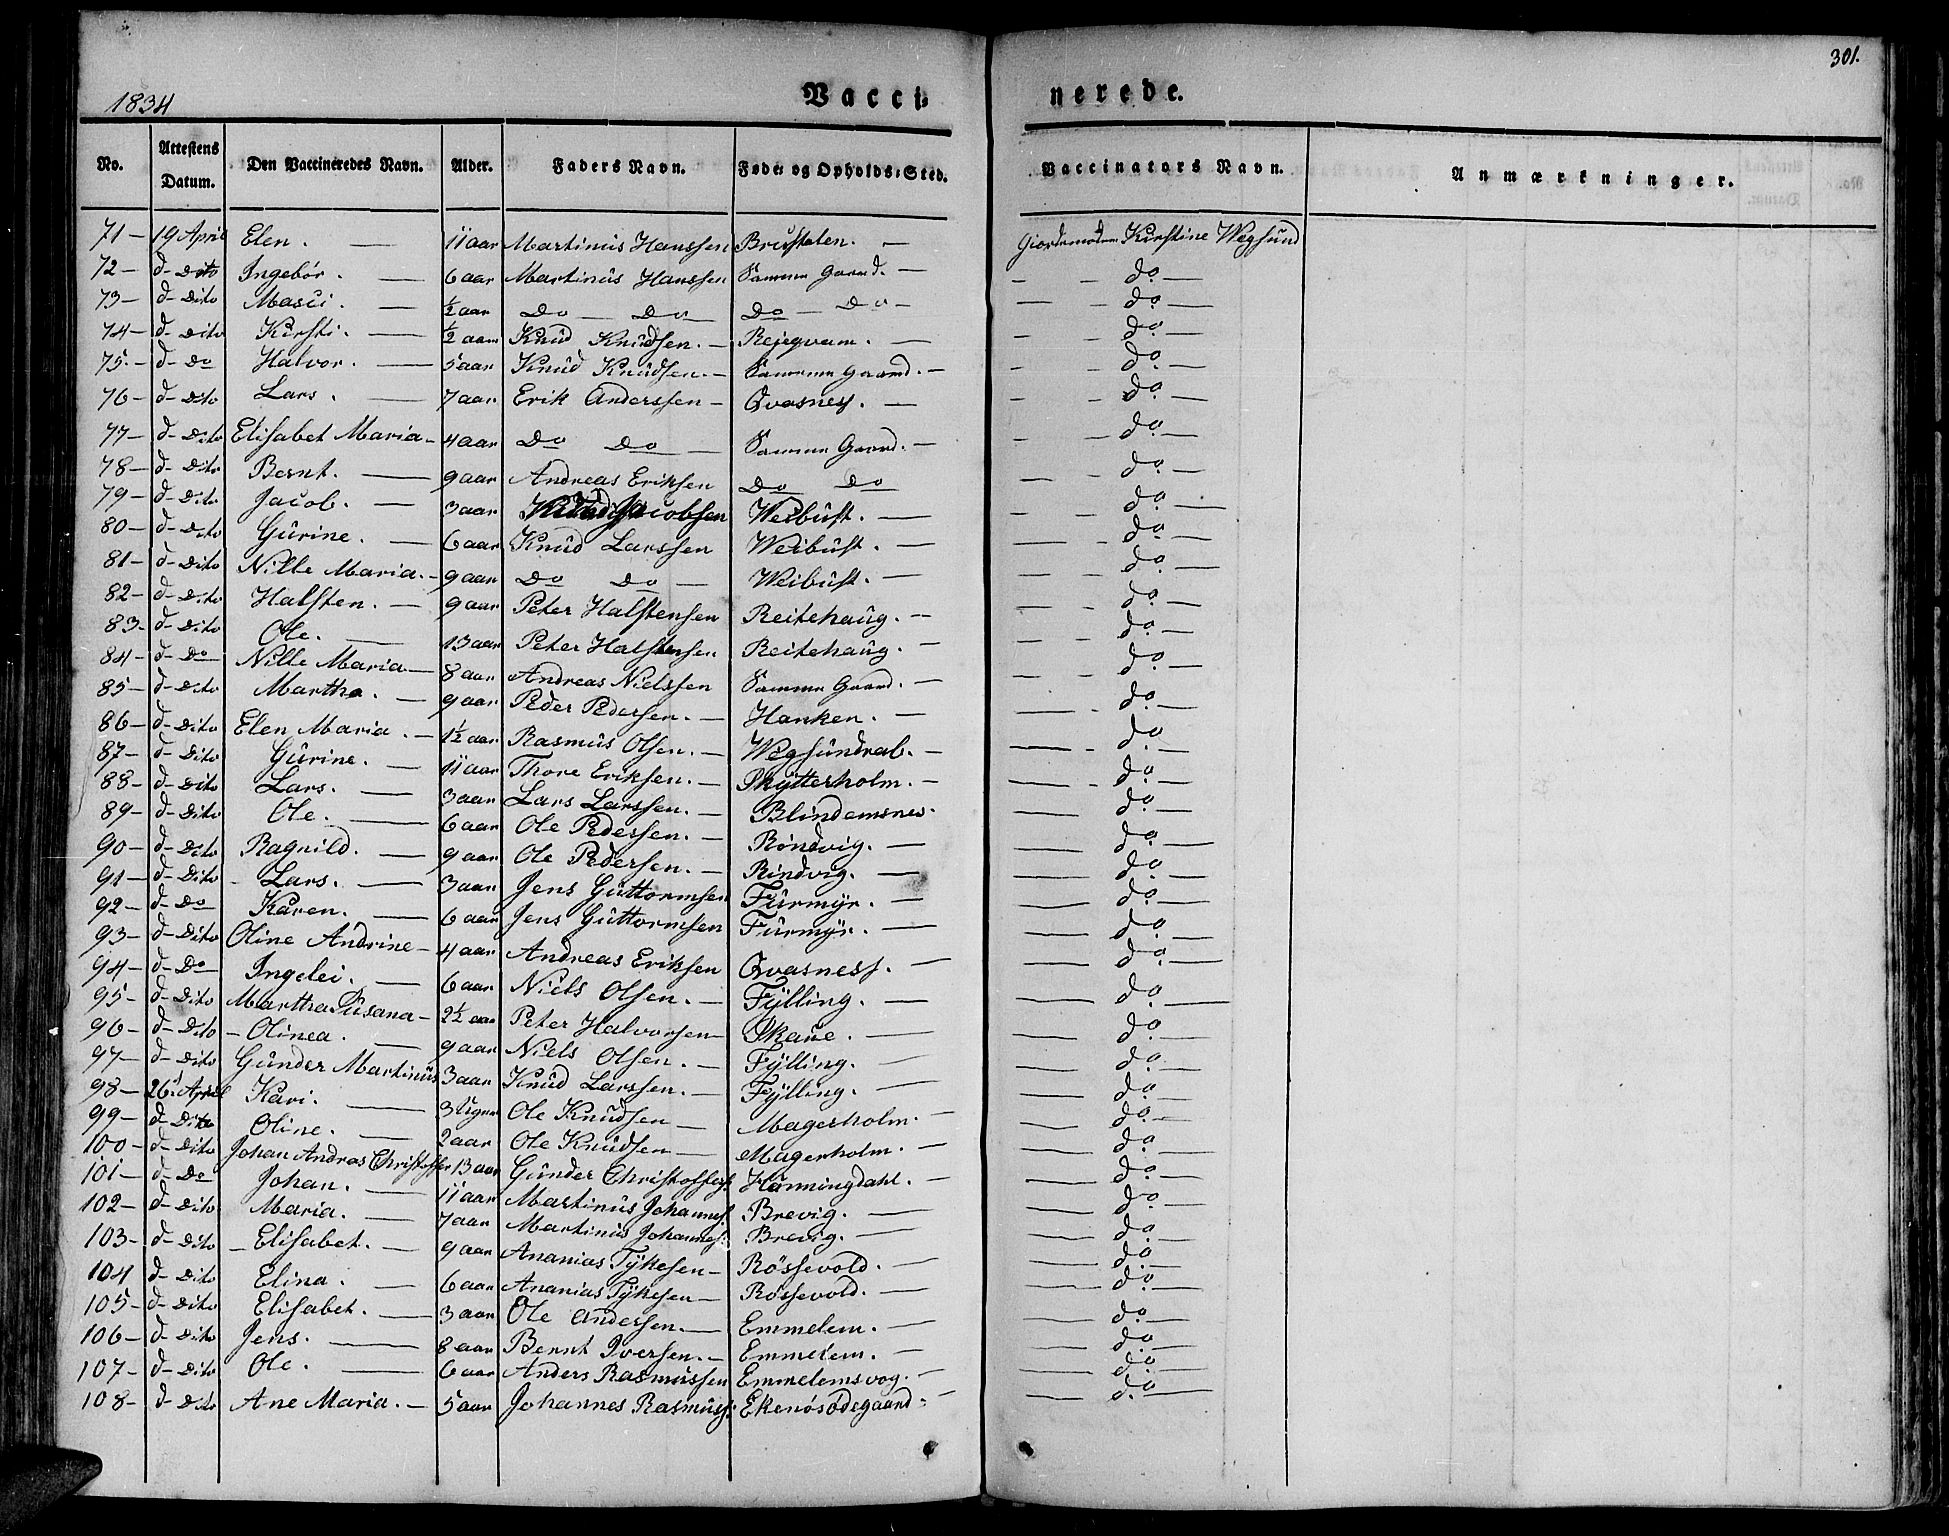 301.
1834 Vacci- nerede.
No. Attestens Datum. Den Vaccineredes Navn. Alder. Faders Navn. Føde- og Opholds-Sted. Vaccinators Navn. Anmærkninger.
71- 19 April Elen. 11 aar Martinus Hanssen Brusteten. Giordemodem Kirstine Wegsund
72- d- Dito Ingebor. 6 aar Martinus Hanssen Samme Gaard. do
73- d- Dito Masci. ½ aar Do Do Do Do do
74- d- Dito Kirsti. ½ aar Knud Knudsen. Rejegvam. do
75- d- Do Halvor. 5 aar Knud Knudsen. Samme Gaard. do
76- d- Dito Lars. 7 aar Erik Anderssen Qvasness. do
77- d- Dito Elisabet Maria 4 aar Do Do Samme Gaard. do
78- d- Dito Bernt. 9 aar Andreas Eriksen Do Do do
79- d- Dito Jacob. 3 aar Jacobsen Weibust. do
80- d- Dito Gurine. 6 aar Knud Larssen Weibust. do
81- d- Dito Nille Maria. 9 aar Do Do Weibust. do
82- d- Dito Halsten. 9 aar Peter Halstensen Reitehaug. do
83- d- Dito Ole. 13 aar Peter Halstensen Reitehaug. do
84- d- Do Nille Maria 8 aar Andreas Nielssen Samme Gaard. do
85- d- Dito Martha. 9 aar Peder Pedersen. Hanken. do
86- d- Dito Elen Maria. 1½ aar Rasmus Olsen. Wegsundral. do
87- d- Dito Gurine. 11 aar Thore Eriksen. Skytterholm. do
88- d- Dito Lars. 3 aar Lars Larssen. Blindemsnes. do
89- d- Dito Ole. 6 aar Ole Pedersen. Röndvig. do
90- d- Dito Ragnild. 9 aar Ole Pedersen. Rindvig. do
91- d- Dito Lars. 3 aar Jens Guttormsen Furmyr. do
92- d- Do Karen. 6 aar Jens Guttormsen Furmyr. do
93- d- Dito Oline Andrine 4 aar Andreas Eriksen Qvasness. do
94- d- Do Ingelei. 6 aar Niels Olsen. Fylling. do
95- d- Dito Martha Susana 2½ aar Peter Halvorsen Skaue. do
96- d- Dito Olinea. 9 aar Niels Olsen. Fylling. do
97- d- Dito Gunder Martinus 3 aar Knud Larssen. Fylling. do
98- 26 April Kari. 3 Uger Ole Knudsen Magerholm. do
99- d- Dito Oline. 2 aar Ole Knudsen Magerholm. do
100- d- Dito Johan Andras Christoffer 13 aar Gunder Christoffers: Honningdahl. do
101- d- Do Johan. 11 aar Martinus Johannes: Brevig. do
102- d- Dito Maria. 7 aar Martinus Johannes: Brevig. do
103- d- Dito Elisabet. 9 aar Ananias Tykesen Rössevold. do
104 d- Dito Elina. 6 aar Ananias Tykesen Rössevold. do
105- d- Dito Elisabet. 3 aar Ole Andersen. Emmelem. do
106- d- Dito Jens. 8 aar Bernt Iversen. Emmelem. do
107- d- Dito Ole. 6 aar Anders Rasmussen Emmelemsvog. do
108- d- Dito Ane Maria. 5 aar Johannes Rasmuss: Ekenösödegaard do